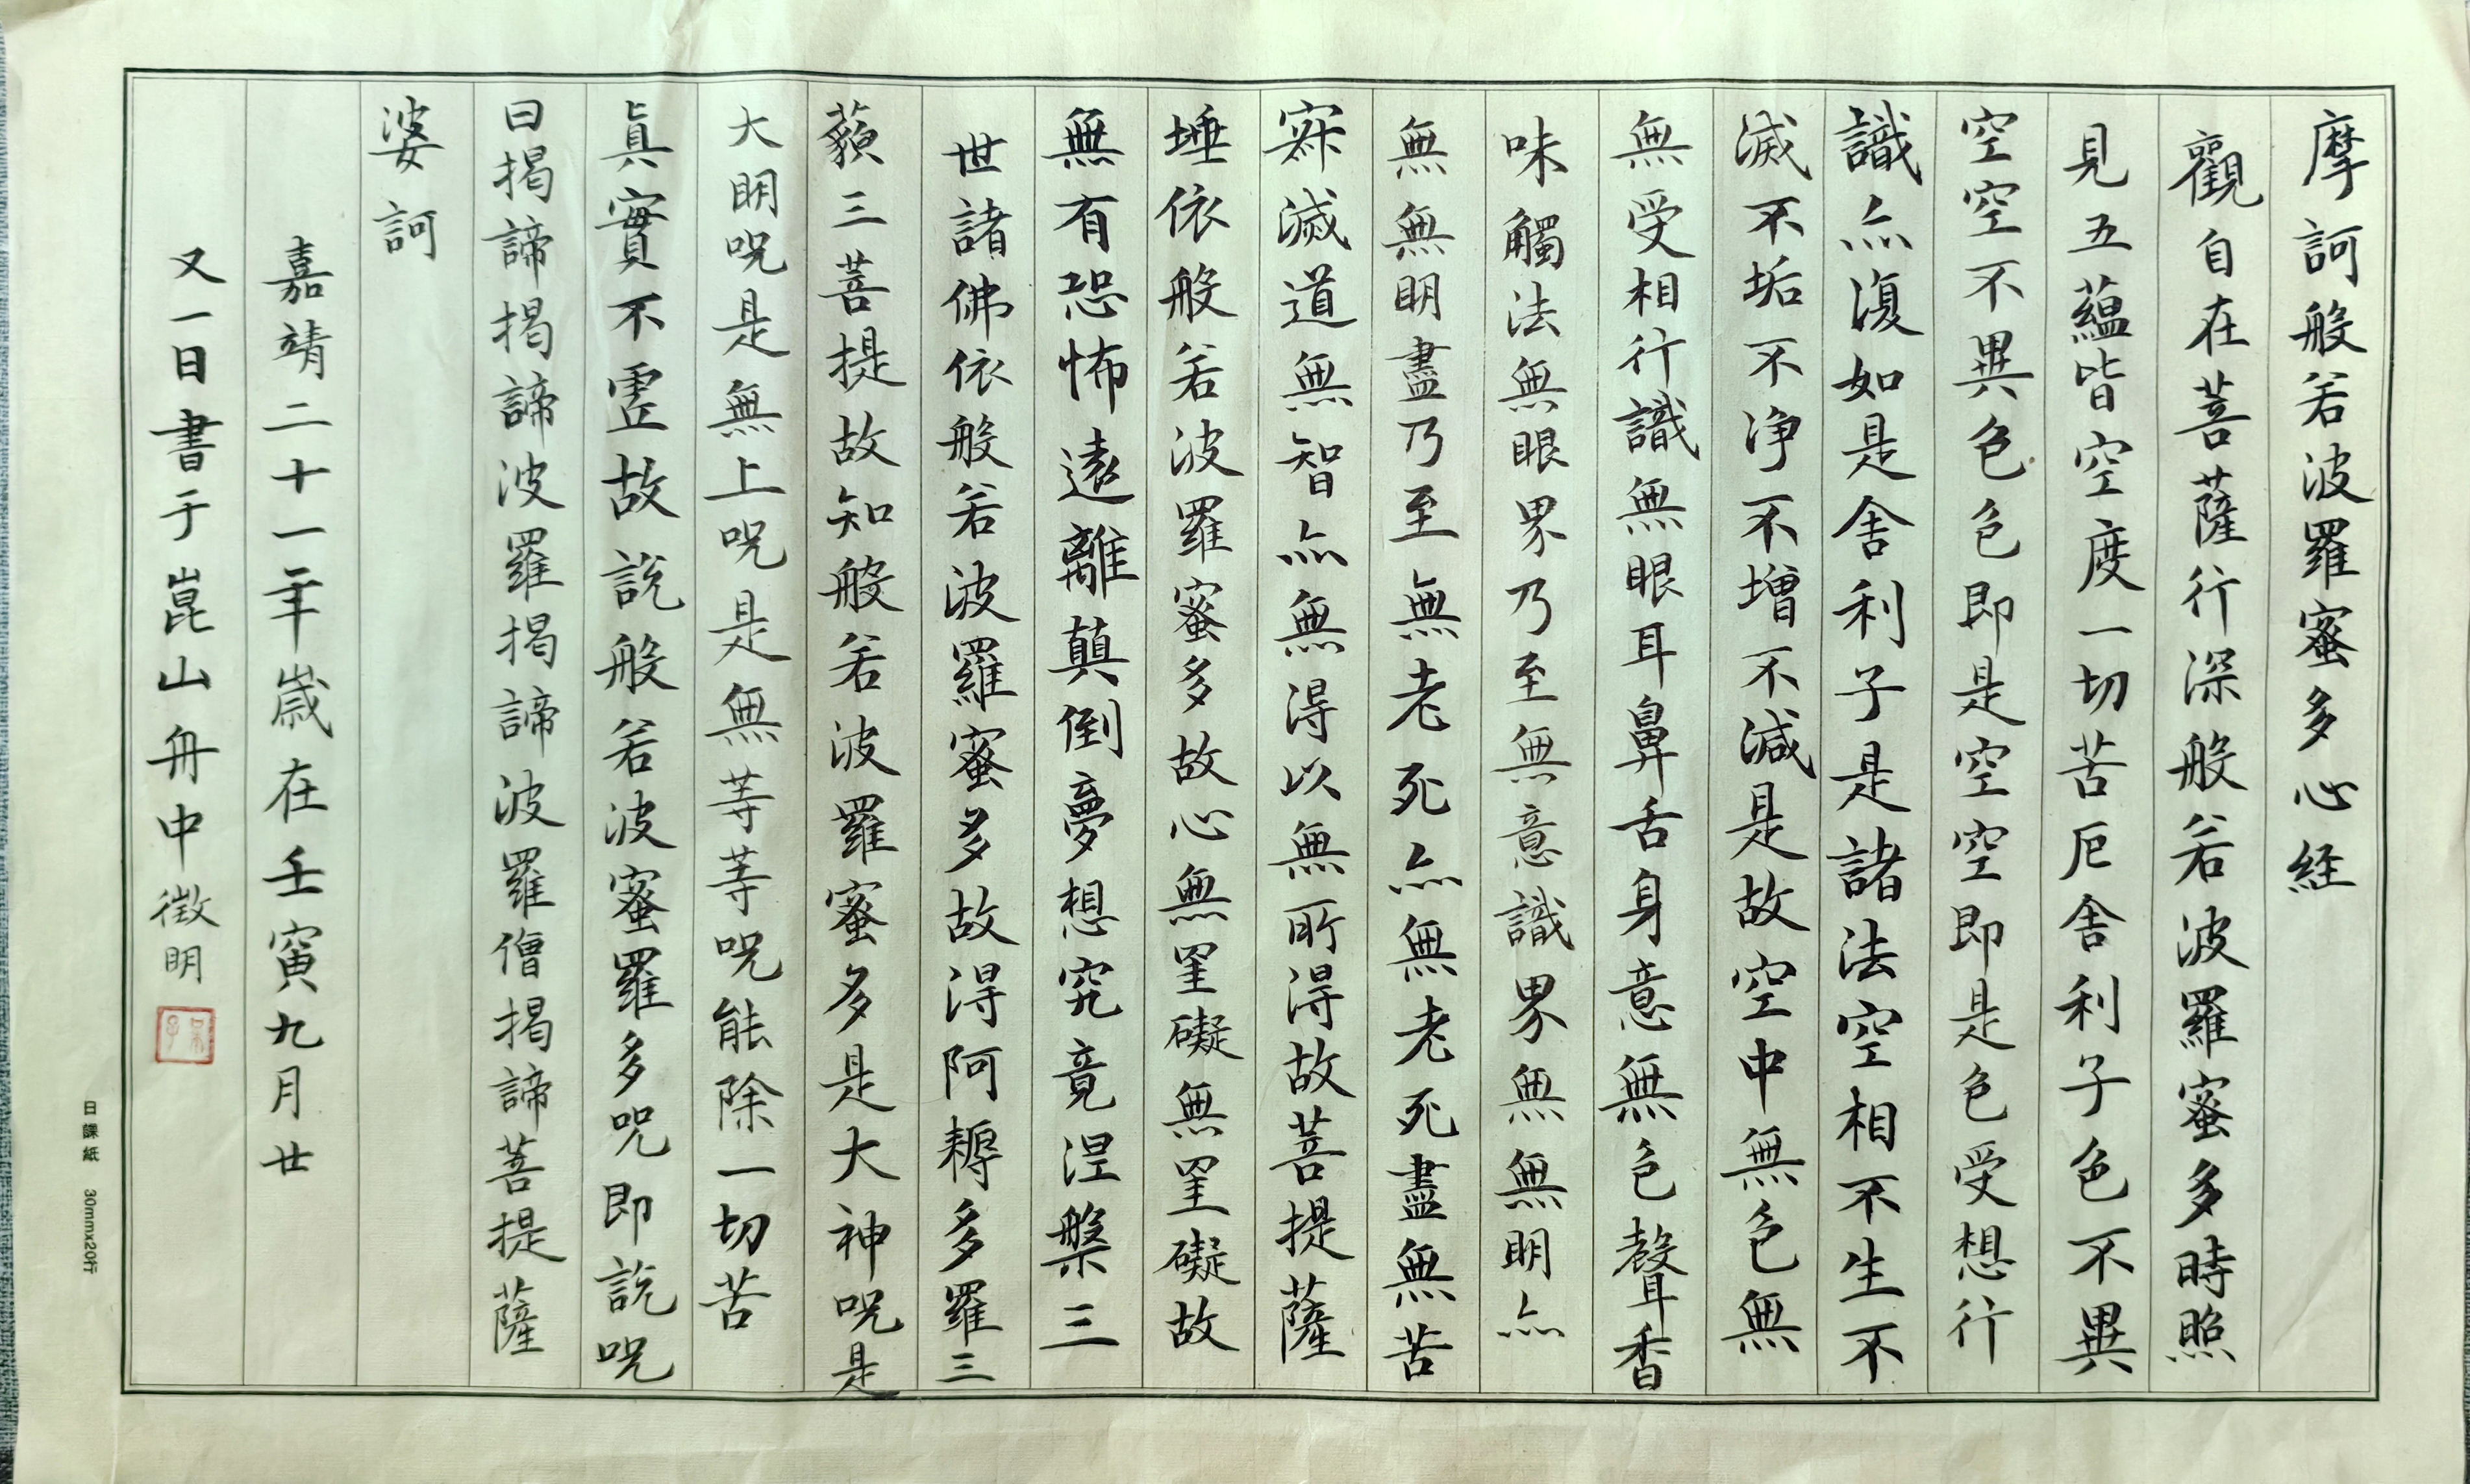 摩訶般若波羅蜜多心経
觀自在菩薩行深般若波羅蜜多時照
見五蘊皆空度一切苦厄舎利子色不異
空空不異色色即是空空即是色受想行
識亦復如是舎利子是諸法空相不生不
滅不垢不净不增不減是故空中無色無
無受相行識無眼耳鼻舌身意無色聲香
味觸法無眼界乃至無意識界無無明亦
無無明盡乃至無老死亦無老死盡無苦
寂滅道無智亦無得以無所得故菩提薩
埵依般若波羅蜜多故心無罣礙無罣礙故
無有恐怖遠離顛倒夢想究竟涅槃三
世諸佛依般若波羅蜜多故得阿耨多羅三
藐三菩提故知般若波羅蜜多是大神呪是
大明呪是無上呪是無等等呪能除一切苦
真實不虛故說般若波蜜羅多呪即說呪
曰揭諦揭諦波羅揭諦波羅僧揭諦菩提薩
婆訶
嘉靖二十一年歲在壬寅九月廿
又一日書于崑山舟中徵明
日課紙 30mmx20行